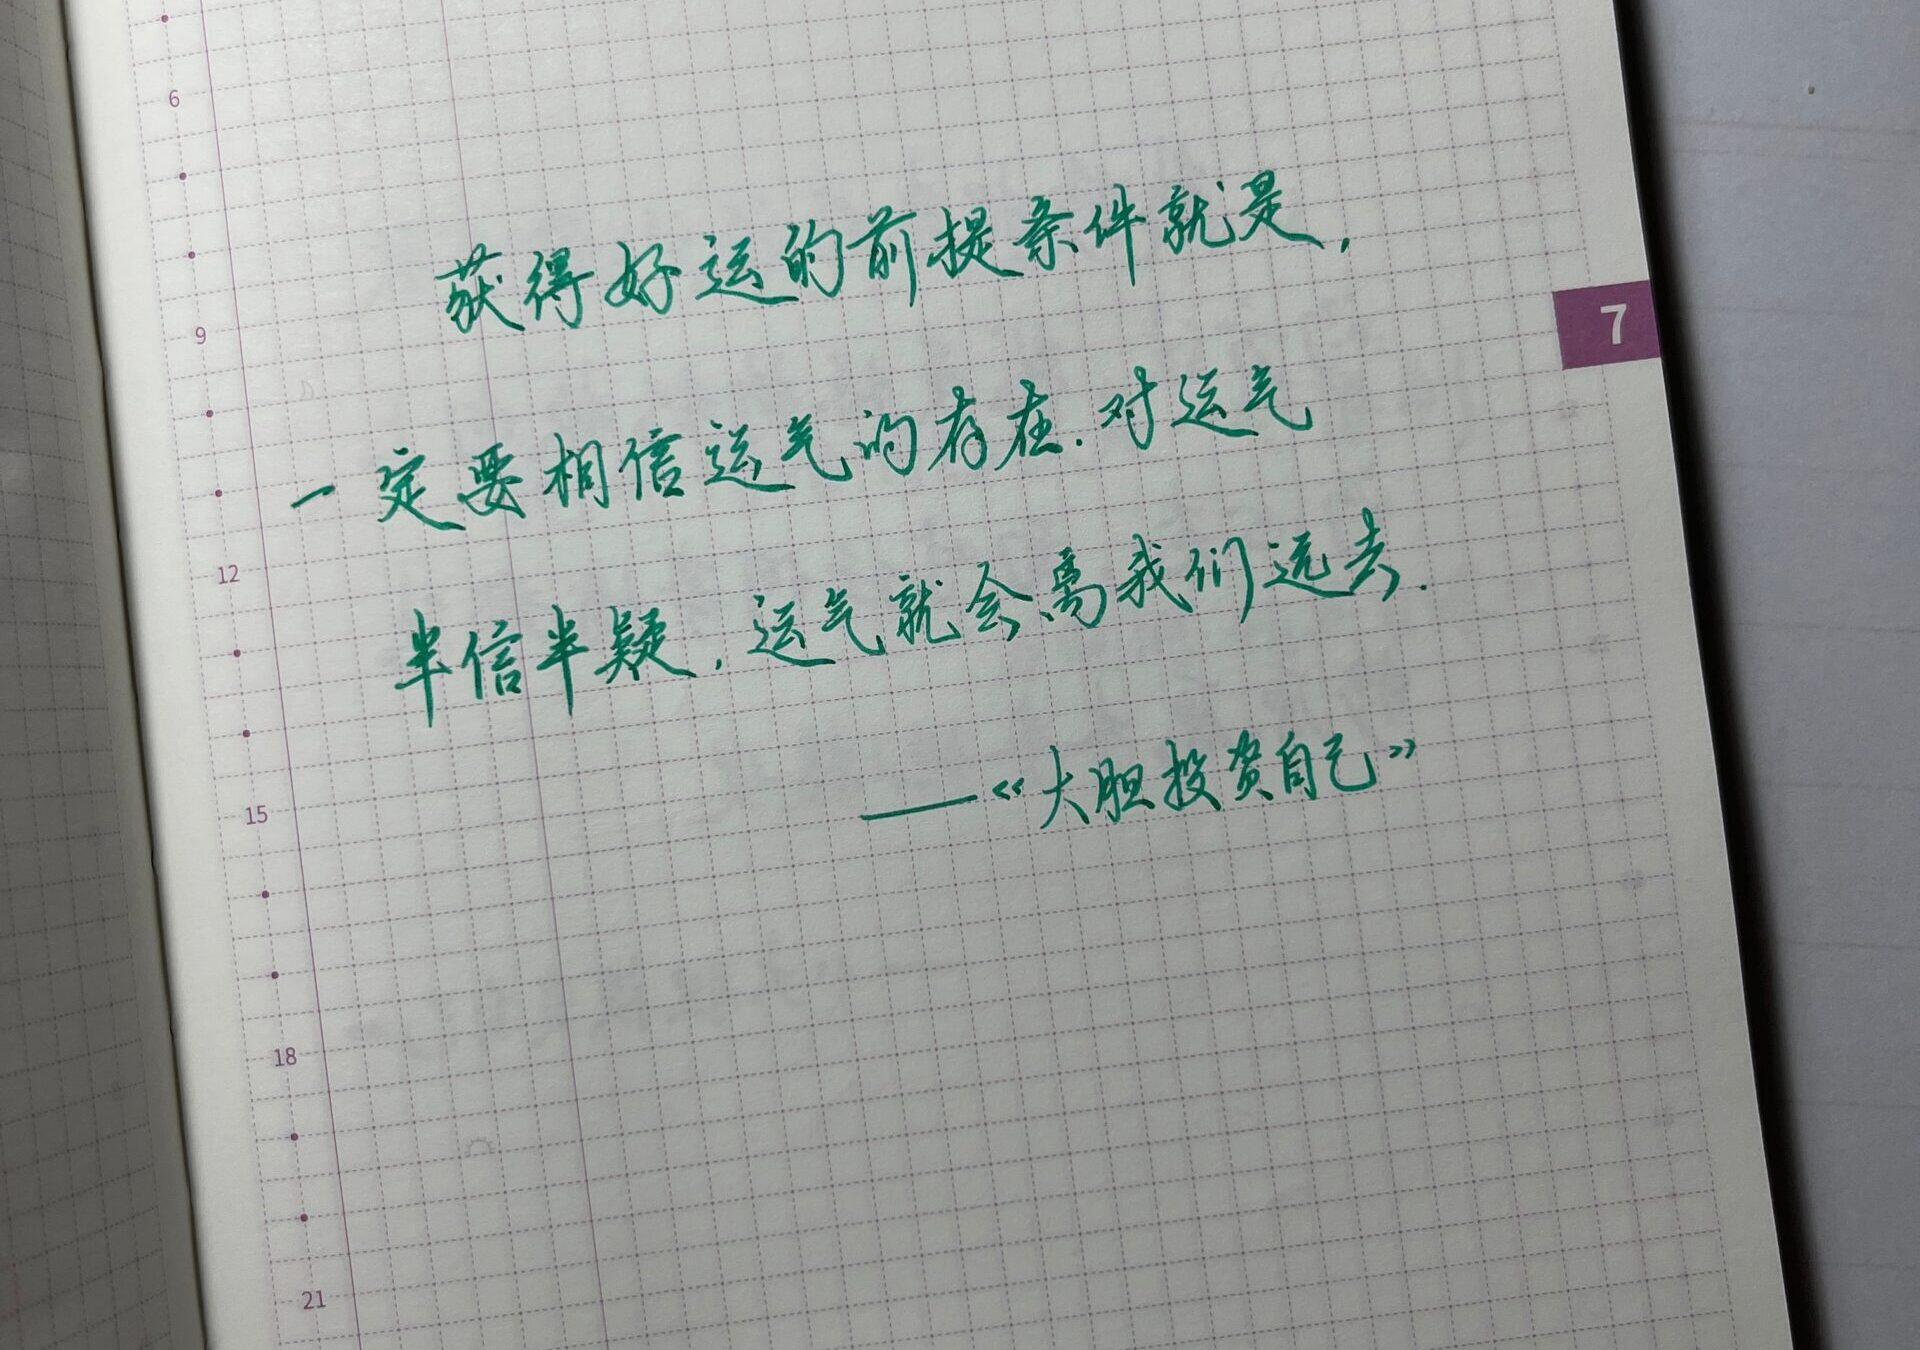 6
获得好运的前提条件就是，
9
7
一定要相信运气的存在.对运气
12
半信半疑，运气就会离我们远去.
15
——《大胆投资自己》
18
21